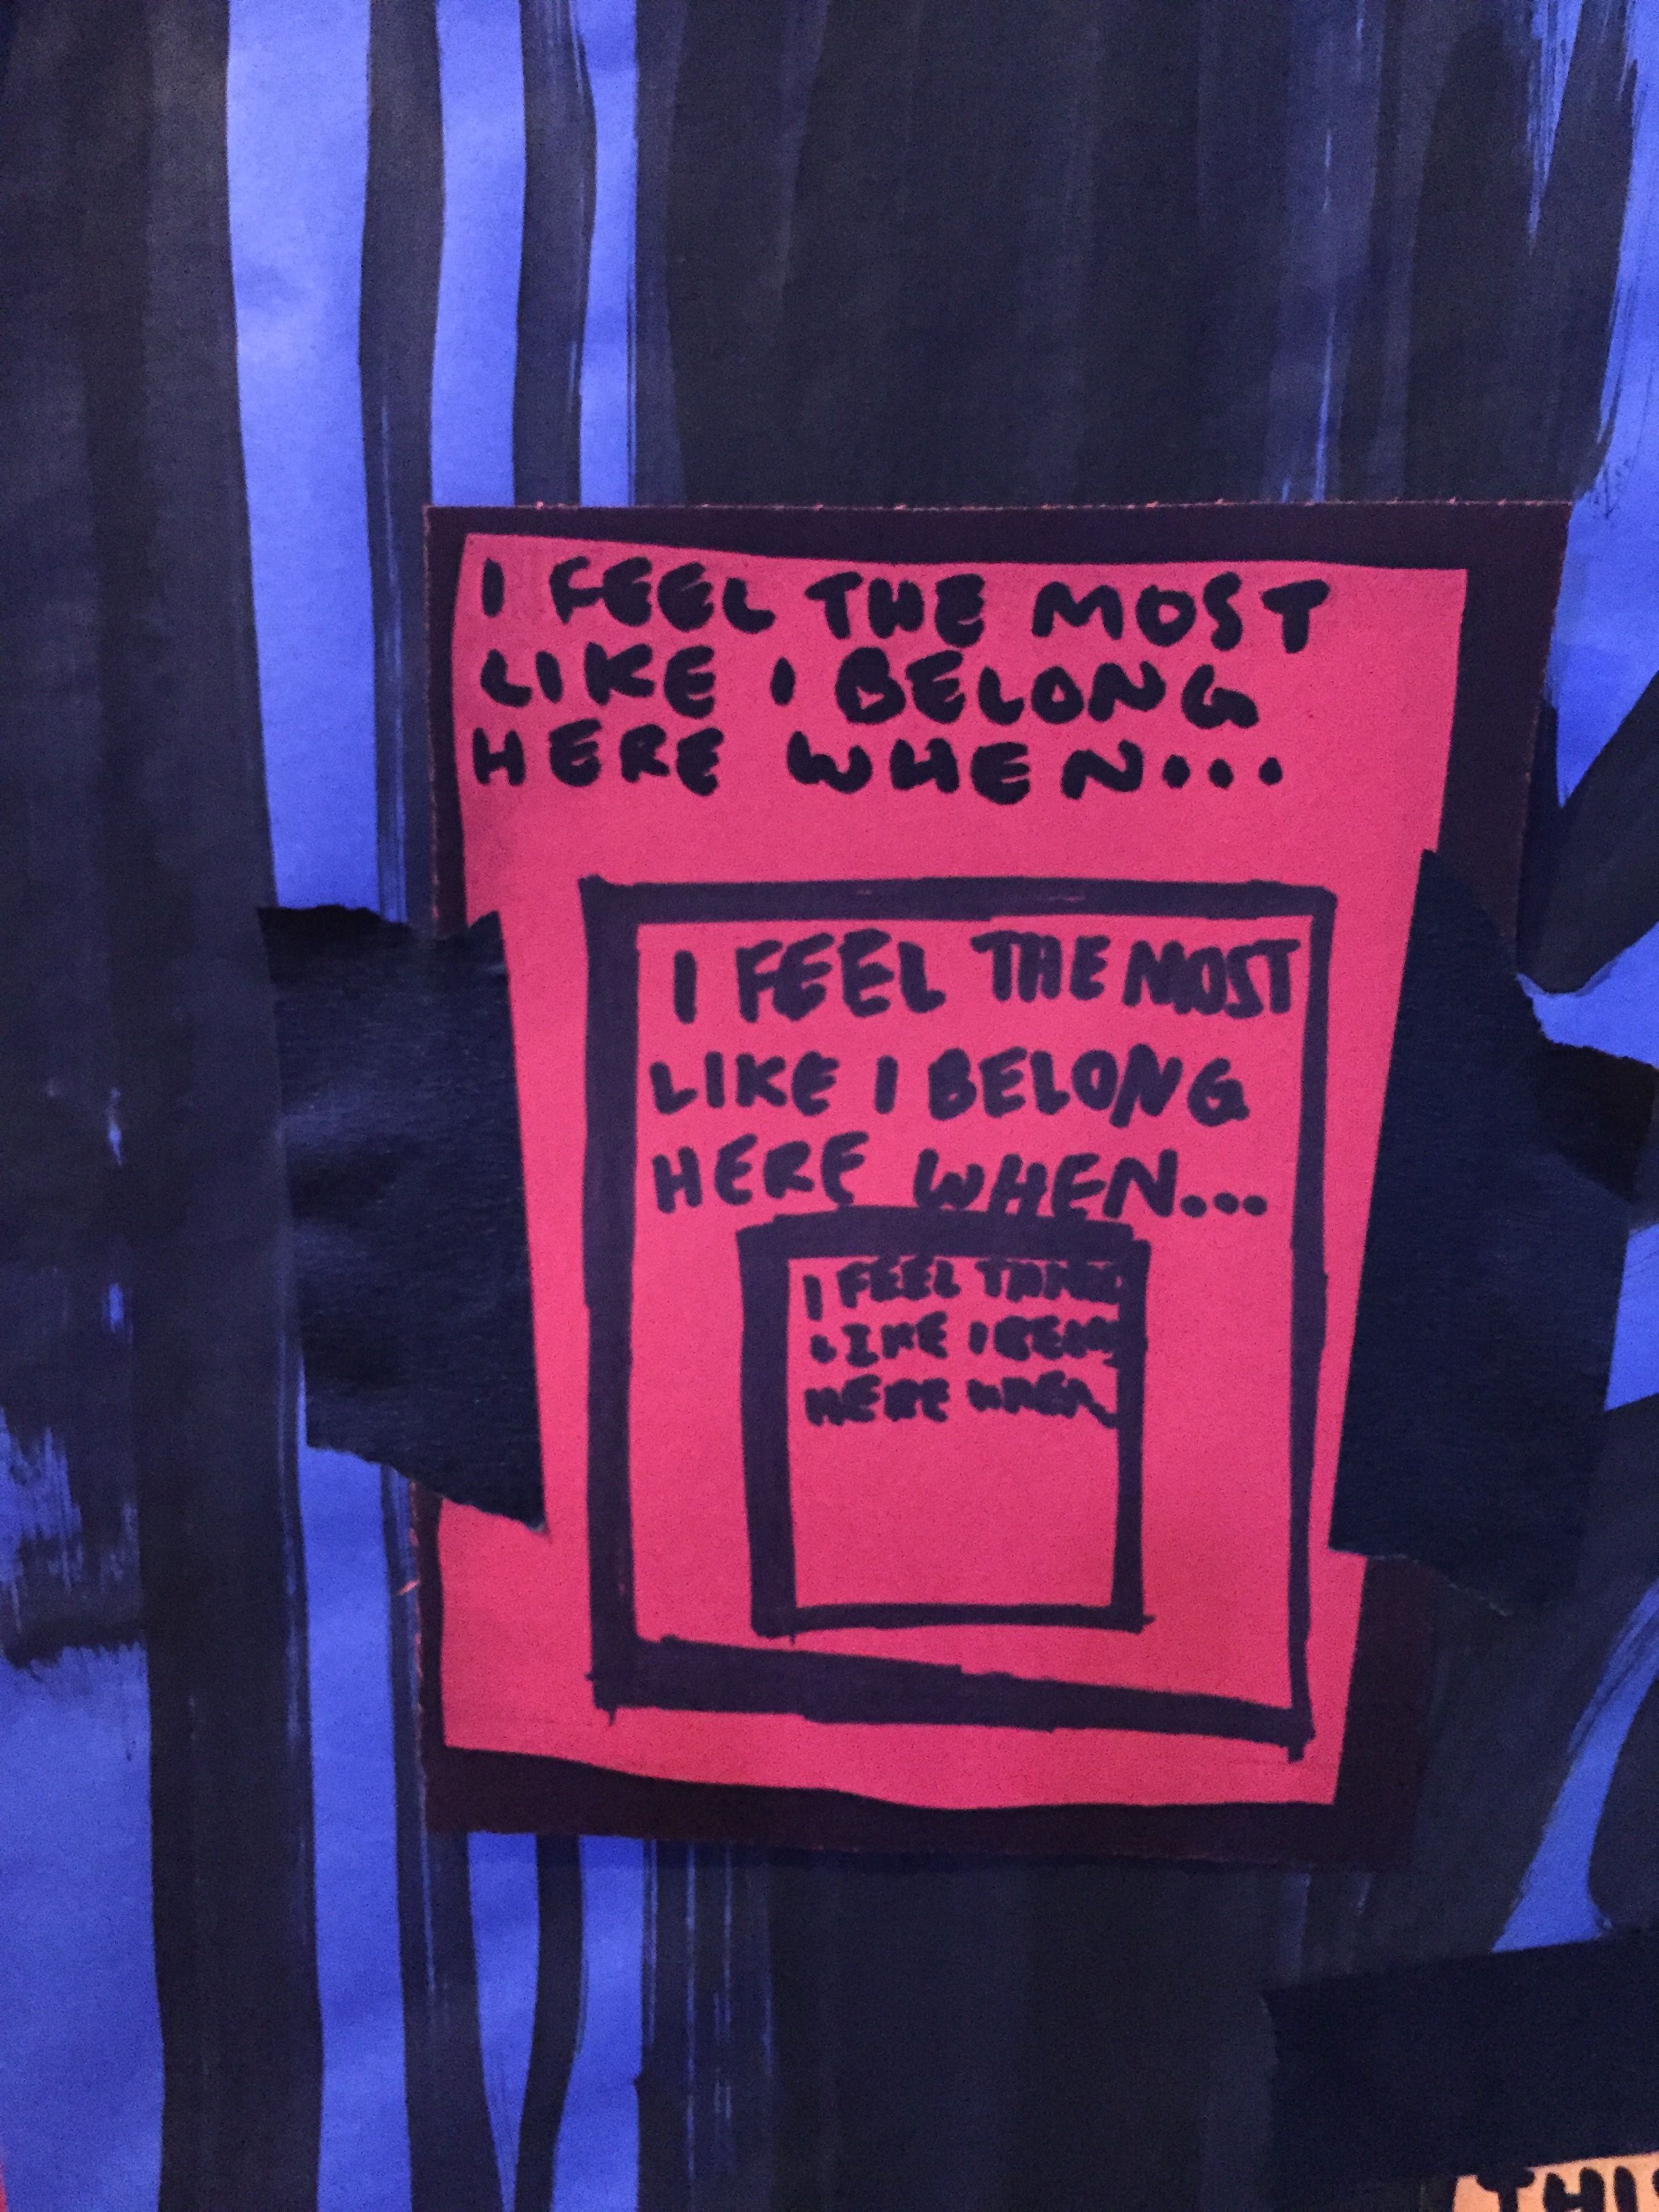 I FEEL THE MOST
LIKE I BELONG
HERE WHEN...
I FEEL THE MOST
LIKE I BELONG
HERE WHEN...
I FEEL
LIKE I
HERE WHEN